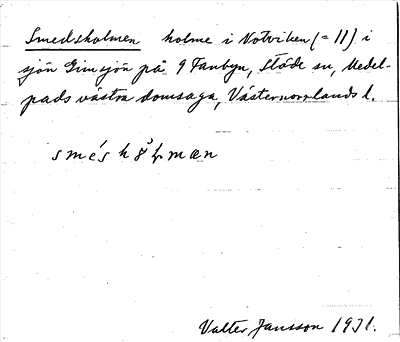 Smedsholmen holme i Notviken (= 11) i
sjön Gimsjön på 9 Fanbyn, Stöde sn, Medel-
pads västra domsaga, Västernorrlands l.
smés hå̀ɫmæn
Valter Jansson 1931.